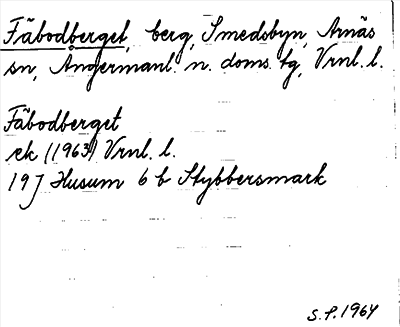 Fäbodberget, berg, Smedsbyn, Arnäs
sn, Ångermanl. n. doms. tg, Vrnl. l.
Fäbodberget
ek (1963) Vrnl. l.
19 J Husum 6 b Stybbersmark
S.P. 1964